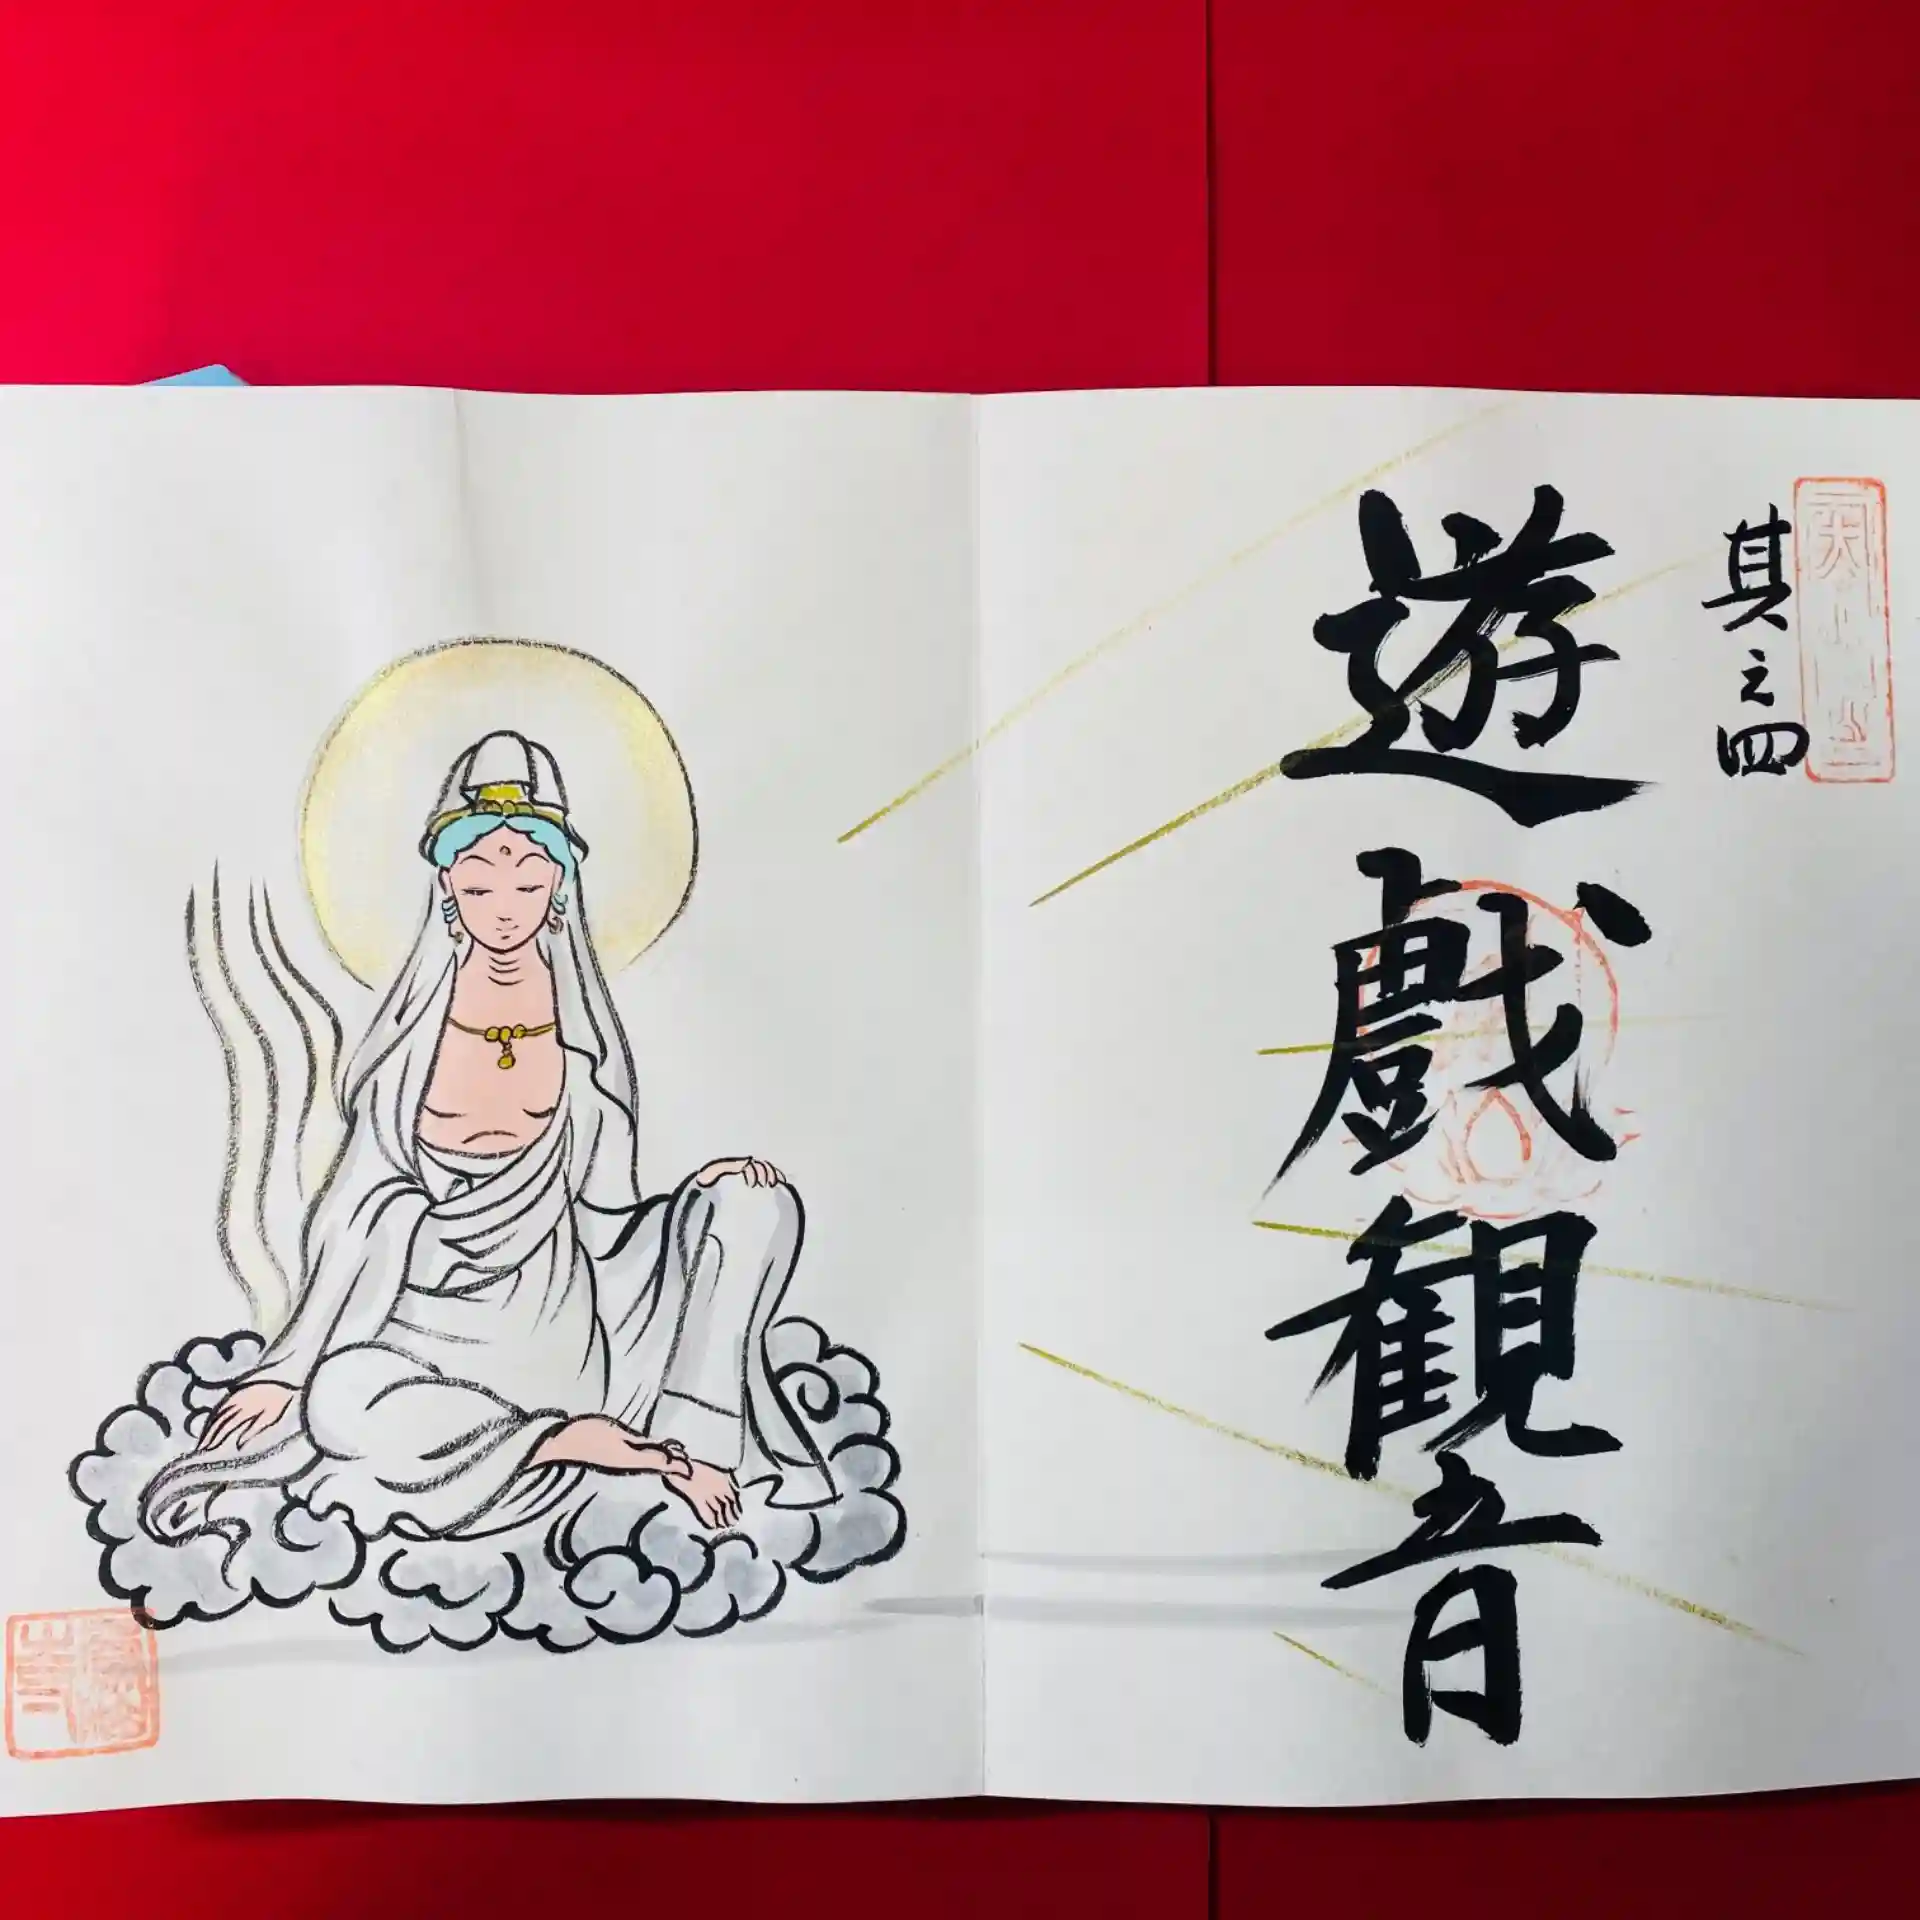 其之四
遊戯観音